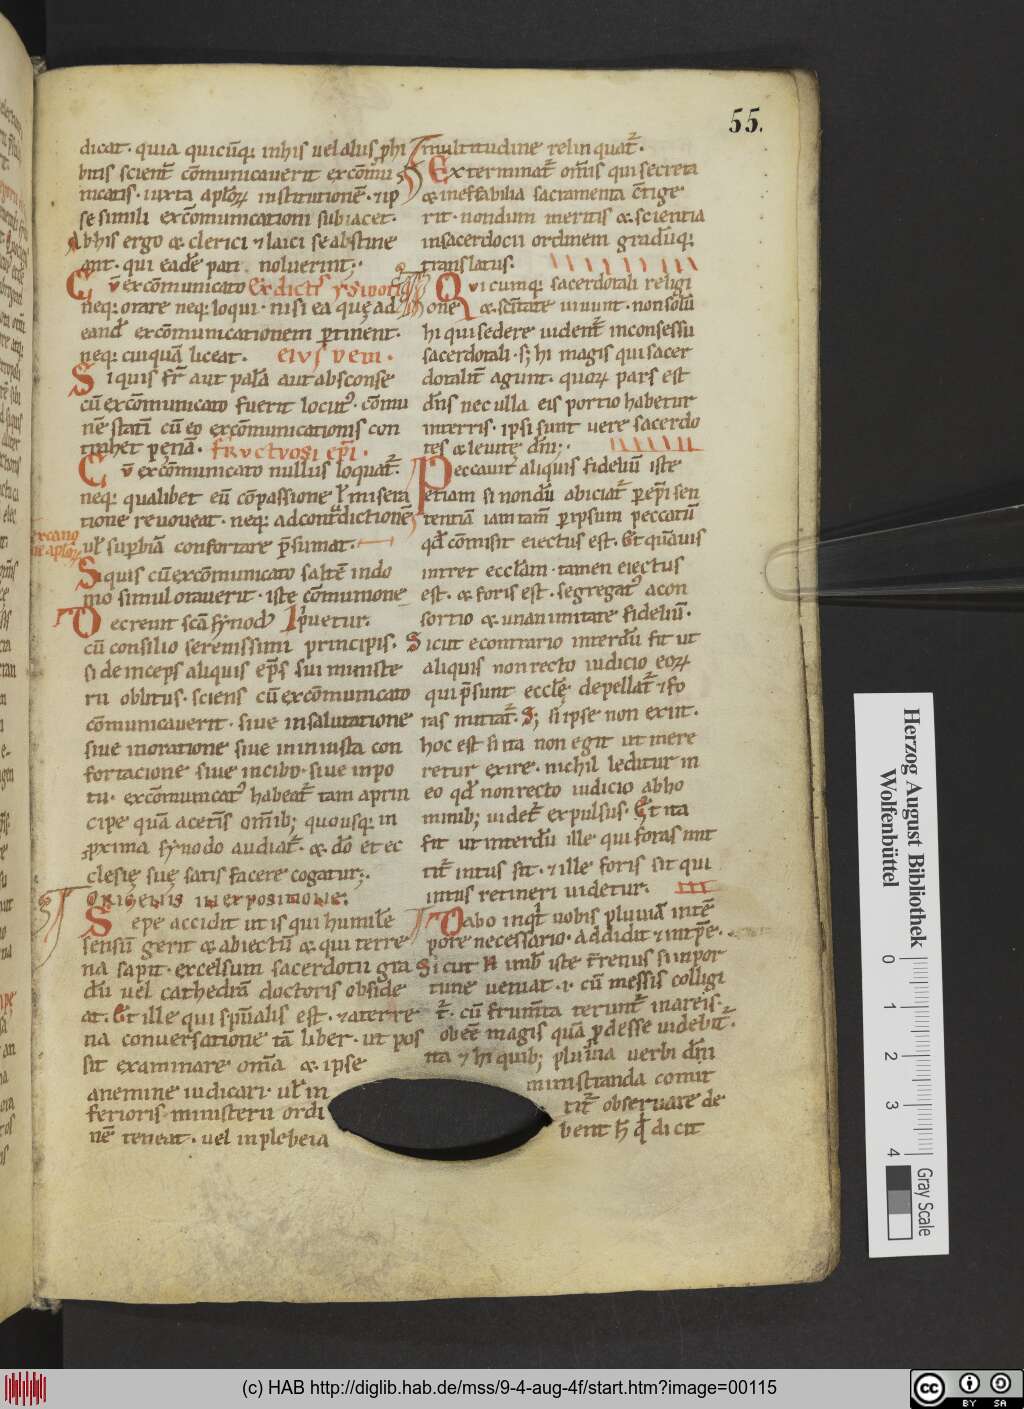 55.
dicat. quia quicūq; inhis uel aliis ꝓhi
bitis scient̄ cōmunicauerit excōmu
nicatis. iuxta aplōꝝ institutionē. ⁊ip
se simili excōmunicationi subiacet.
Abhis ergo & clerici ⁊ laici se abstine
ant. qui eadē pati noluerint;.
Cū excōmunicato Ex dictis ysiodori
neq; orare neq; loqui. nisi ea quę ad
eandē excōmunicationem ꝑtinent.
neq; cuiquā liceat. eivs vem.
Siquis fr̄ aut palā aut absconse
cū excōmunicato fuerit locut᾽. cōmu
nē statī cū eo excōmunicationis con
trahet penā. frvctvosi ep̄i.
Cū excōmunicato nullus loquat᷒.
neq; qualibet eū cōpassione ł misera
tione reuoueat. neq; ad contdictionē
uł supbiā confortare p̄sumat.
ex cano
ne aplōꝝ
Siquis cū excōmunicato saltē indo
mo simul orauerit. iste cōmunione
Decreuit scā synod᾽ Ipuetur.
cū consilio serenissimi principis.
si deinceps aliquis ep̄s sui ministe
rii oblitus. sciens cū excōmunicato
cōmunicauerit. siue insalutatione
siue inoratione siue ininiusta con
fortacione siue incibo. siue inpo
tu. excōmunicat᾽ habeat᷒ tam aprin
cipe quā acetīs om̄ib; quousq; in
ꝓxima synodo audiat᷒. & dō et ec
clesię suę satis facere cogatur;.
Origenis in expositione.
Sepe accidit ut is qui humilē
sensū gerit & abiectū & qui terre
na sapit. excelsum sacerdotii gra
dū uel cathedrā doctoris obside
at. Et ille qui spūalis est. &aterre
na conuersatione tā liber. ut pos
sit examinare om̄a & ipse
anemine iudicari. uł in
ferioris ministerii ordi
nē teneat. uel inplebeia
multitudine relinquat᷒.
Exterminat᷒ om̄is qui secreta
& ineffabilia sacramenta c̄tige
rit. nondum meritis & scientia
insacerdocii ordinem gradūq;
translatus.
Quicumq; sacerdotali religi
one & sc̄itate uiuunt. non solū
hi qui sedere uident᷒ inconsessu
sacerdotali. s; hi magis qui sacer
dotalit̄ agunt. quoꝝ pars est
dn̄s nec ulla eis portio habetur
interris. ipsi sunt uere sacerdo
tes & leuitę dn̄i;.
Peccauit aliquis fideliū iste
etiam si nondū abiciat᷒ ꝑ ep̄i sen
tentiā iam tam̄ ꝑ ipsum peccatū
qd̄ cōmisit eiectus est. Et quāuis
intret eccl̄am. tamen eiectus
est. & foris est. segregat᾽ acon
sortio & unanimitate fideliū.
Sicut econtrario interdū fit ut
aliquis non recto iudicio eoꝝ
qui p̄sunt eccl̄ę depellat᷒ ⁊ fo
ras mittat᷒. S; si ipse non exiit.
hoc est si ita non egit ut mere
retur exire. nichil leditur in
eo qd̄ non recto iudicio abho
minib; uidet᷒ expulsus. Et ita
fit ut interdū ille qui foras mit
tit᷒ intus sit. ⁊ ille foris sit qui
intus retineri uidetur.
Dabo inqt uobis pluuiā intē
pore necessario. addidit ⁊ intp̄e.
Sicut n̄ imb̄ iste t̄renus si inpor
tune ueniat .i. cū messis colligi
t᷒. cū frum̄ta terunt᷒ inareis.
obeē magis quā ꝓdesse uidebit᷒.
ita ⁊ hi quib; pluuia uerbi dn̄i
ministranda comit
tit᷒ obseruare de
bent h̄ qd̄ dicit
Herzog August Bibliothek
Wolfenbüttel
0 1 2 3 4
Gray Scale
(c) HAB http://diglib.hab.de/mss/9-4-aug-4f/start.htm?image=00115
cc BY SA